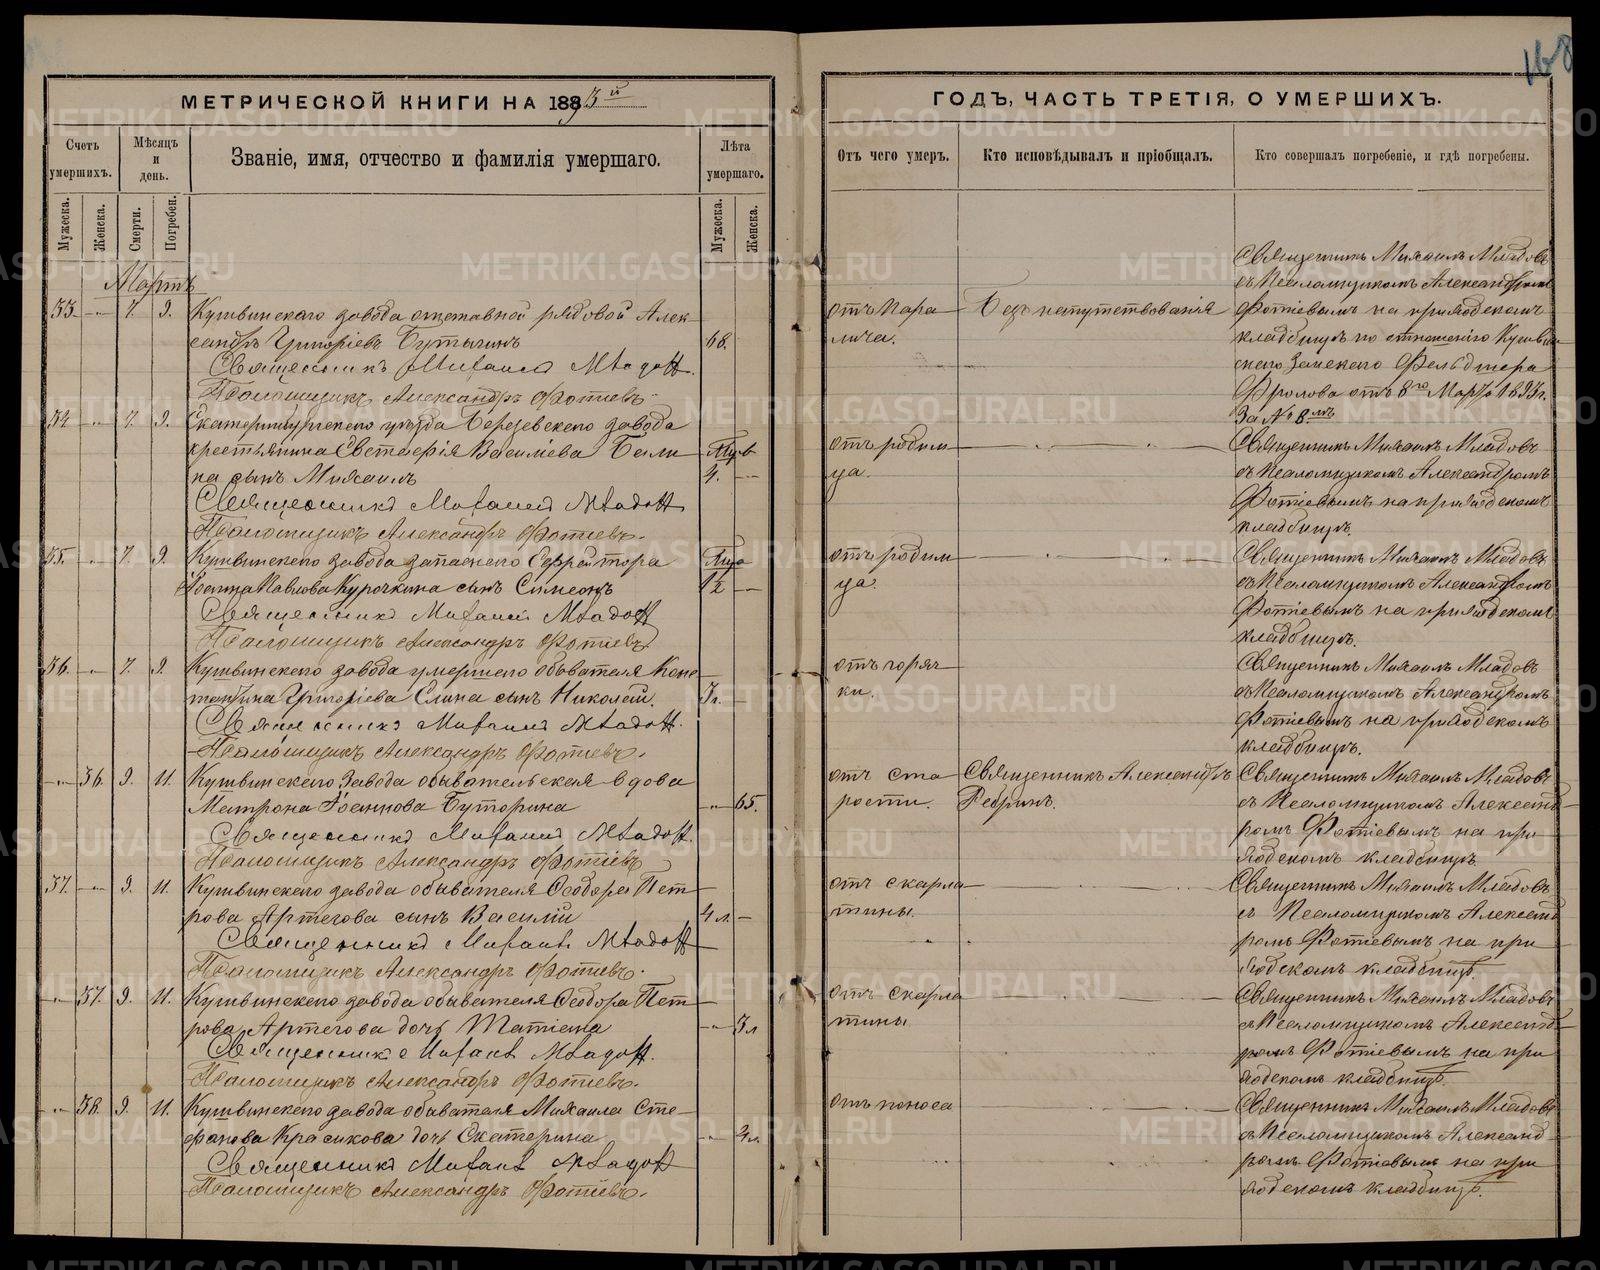 168
МЕТРИЧЕСКОЙ КНИГИ НА 1893й
ГОДЪ, ЧАСТЬ ТРЕТІЯ, О УМЕРШИХЪ.
Счетъ умершихъ.
Мѣсяцъ и день.
Званіе, имя, отчество и фамилія умершаго.
Лѣта умершаго.
Отъ чего умеръ.
Кто исповѣдывалъ и пріобщалъ.
Кто совершалъ погребеніе, и гдѣ погребены.
Мужеска.
Женска.
Смерти.
Погребен.
Мужеска.
Женска.
Мартъ
53. 7. 9. Кушвинскаго завода отставной рядовой Алек-
сандръ Григоріевъ Бутыгинъ 68.
Священникъ Михаилъ Младовъ.
Псаломщикъ Александръ Фотіевъ.
отъ пара
лича.
Безъ напутствованія
Священникъ Михаилъ Младовъ
съ Псаломщикомъ Александромъ
Фотіевымъ на приходскомъ
кладбищѣ по отношенію Кушвин-
скаго Земскаго Фельдшера
Фролова отъ 8го Марта 1893 г.
За № 8мъ
54 7. 9. Екатеринбургскаго уѣзда Березовскаго завода
крестьянина Евстафія Василіева Бели
на сынъ Михаилъ 4.
Священникъ Михаилъ Младовъ
Псаломщикъ Александръ Фотіевъ.
отъ родим
ца.
Священникъ Михаилъ Младовъ
съ Псаломщикомъ Александромъ
Фотіевымъ на приходскомъ
кладбищѣ.
55. 7. 9. Кушвинскаго завода запаснаго Ефрейтора
Іоанна Павлова Курочкина сынъ Симеонъ 12
Священникъ Михаилъ Младовъ
Псаломщикъ Александръ Фотіевъ.
отъ родим
ца.
Священникъ Михаилъ Младовъ
съ Псаломщикомъ Александромъ
Фотіевымъ на приходскомъ
кладбищѣ.
56. 7. 9. Кушвинскаго завода умершаго обывателя Конс
тантина Григоріева Елина сынъ Николай. 3 г.
Священникъ Михаилъ Младовъ.
Псаломщикъ Александръ Фотіевъ.
отъ горяч
ки.
Священникъ Михаилъ Младовъ
съ Псаломщикомъ Александромъ
Фотіевымъ на приходскомъ
кладбищѣ.
36. 9. 11. Кушвинскаго Завода обывательская вдова
Матрона Іоаннова Буторина 65.
Священникъ Михаилъ Младовъ.
Псаломщикъ Александръ Фотіевъ
отъ ста
рости.
Священникъ Александръ
Ребринъ.
Священникъ Михаилъ Младовъ
съ Псаломщикомъ Александ-
ромъ Фотіевымъ на при
ходскомъ кладбищѣ
57. 9. 11. Кушвинскаго завода обывателя Ѳеодора Пет
рова Артегова сынъ Василій 4 л.
Священникъ Михаилъ Младовъ
Псаломщикъ Александръ Фотіевъ.
отъ скарла
тины.
Священникъ Михаилъ Младовъ
съ Псаломщикомъ Александ
ромъ Фотіевымъ на при
ходскомъ кладбищѣ.
37. 9. 11. Кушвинскаго завода обывателя Ѳеодора Пет
рова Артегова дочь Татіана 3 л
Священникъ Михаилъ Младовъ.
Псаломщикъ Александръ Фотіевъ.
отъ скарла
тины
Священникъ Михаилъ Младовъ
съ Псаломщикомъ Александ-
ромъ Фотіевымъ на при
ходскомъ кладбищѣ.
38. 9. 11. Кушвинскаго завода обывателя Михаила Сте-
фанова Красикова дочь Екатерина
Священникъ Михаилъ Младовъ
Псаломщикъ Александръ Фотіевъ.
отъ поноса
Священникъ Михаилъ Младовъ
съ Псаломщикомъ Александ-
ромъ Фотіевымъ на при
ходскомъ кладбищѣ.
METRIKI.GASO-URAL.RU